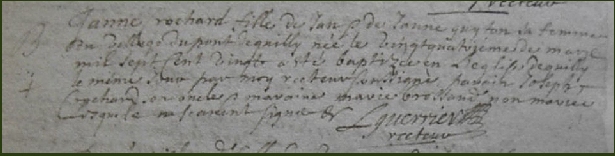 recteur
Janne rochard fille de Jan et de Janne guyton sa femme
du village du pont dequilly née le vingtquatrieme de mars
mil sept cent vingt a esté baptizée en Leglise dequilly
le même jour par moy recteur soussigné parain Joseph
rochard son oncle et maraine marie brossaud non mariée
Lesquels ne scavent signer
Lguerrier
recteur